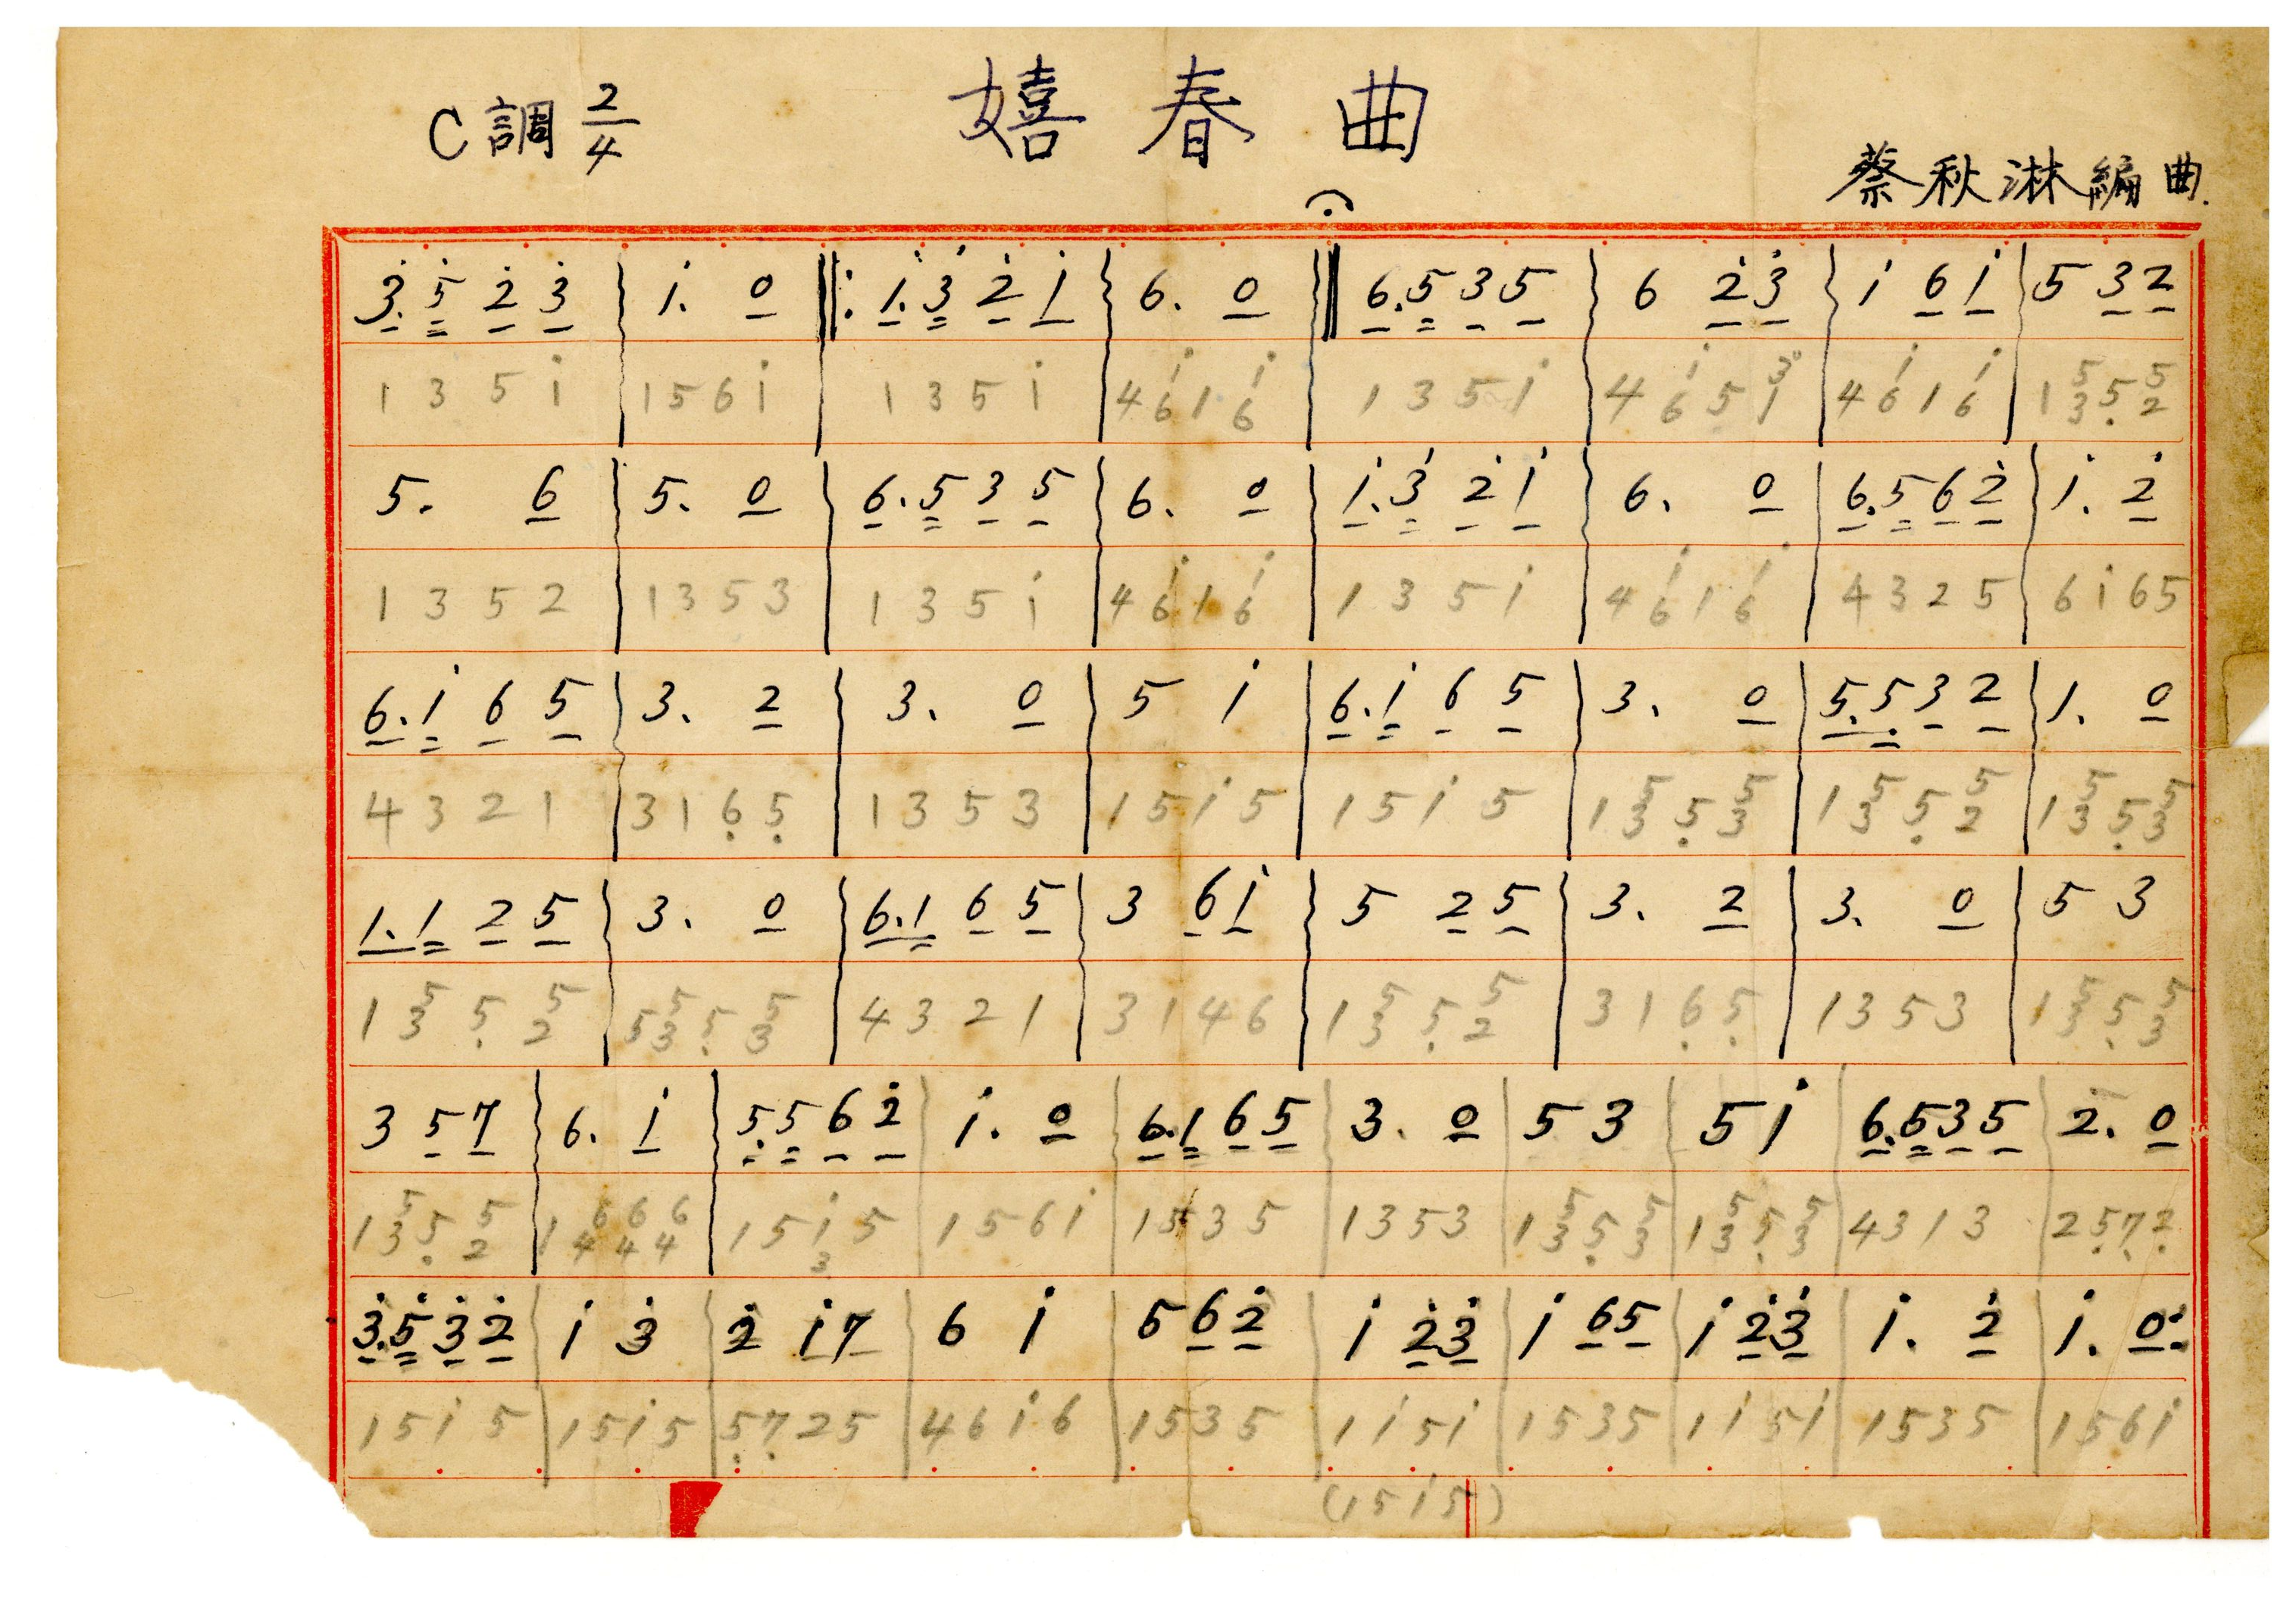 嬉春曲
C調 2/4
蔡秋淋編曲.
3. 5 2 3 | 1. 0 ‖: 1. 3 2 1 | 6. 0 ‖ 6. 5 3 5 | 6 2 3 | 1 6 1 | 5 3 2
1 3 5 1 | 1 5 6 1 | 1 3 5 1 | 4 6 1 1 6 1 | 1 3 5 1 | 4 6 1 5 1 3 | 4 6 1 1 6 1 | 1 3 5 5 2 5
5. 6 | 5. 0 | 6. 5 3 5 | 6. 0 | 1. 3 2 1 | 6. 0 | 6. 5 6 2 | 1. 2
1 3 5 2 | 1 3 5 3 | 1 3 5 1 | 4 6 1 1 6 1 | 1 3 5 1 | 4 6 1 1 6 1 | 4 3 2 5 | 6 1 6 5
6. 1 6 5 | 3. 2 | 3. 0 | 5 1 | 6. 1 6 5 | 3. 0 | 5. 5 3 2 | 1. 0
4 3 2 1 | 3 1 6 5 | 1 3 5 3 | 1 5 1 5 | 1 5 1 5 | 1 3 5 5 3 5 | 1 3 5 5 2 5 | 1 3 5 5 3 5
1. 1 2 5 | 3. 0 | 6. 1 6 5 | 3 6 1 | 5 2 5 | 3. 2 | 3. 0 | 5 3
1 3 5 5 2 5 | 5 3 5 5 3 5 | 4 3 2 1 | 3 1 4 6 | 1 3 5 5 2 5 | 3 1 6 5 | 1 3 5 3 | 1 3 5 5 3 5
3 5 7 | 6. 1 | 5. 5 6 2 | 1. 0 | 6. 1 6 5 | 3. 0 | 5 3 | 5 1 | 6. 5 3 5 | 2. 0
1 3 5 5 2 5 | 1 4 6 4 6 4 6 | 1 5 1 3 5 | 1 5 6 1 | 1 5 3 5 | 1 3 5 3 | 1 3 5 5 3 5 | 1 3 5 5 3 5 | 4 3 1 3 | 2 5 7 2
3. 5 3 2 | 1 3 | 2 1 7 | 6 1 | 5 6 2 | 1 2 3 | 1 6 5 | 1 2 3 | 1. 2 | 1. 0 :
1 5 1 5 | 1 5 1 5 | 5 7 2 5 | 4 6 1 6 | 1 5 3 5 | 1 1 5 1 | 1 5 3 5 | 1 1 5 1 | 1 5 3 5 | 1 5 6 1
(1 5 1 5)